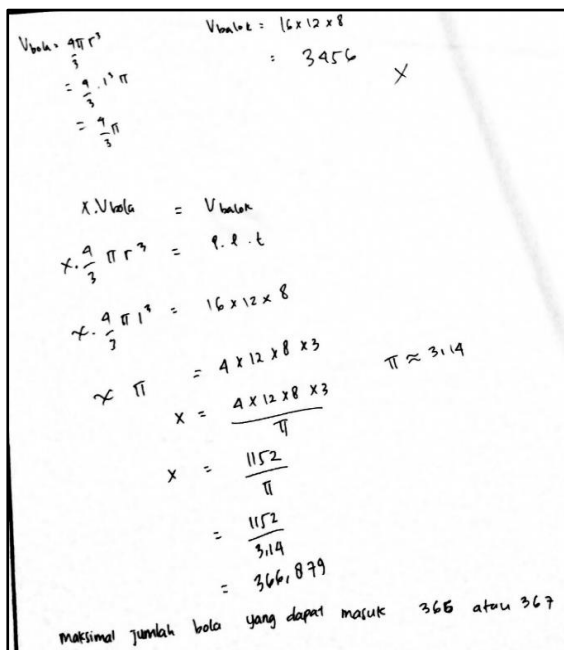 V bola = 4πr³/3
= 4/3 . 1³ π
= 4/3 π
V balok = 16 x 12 x 8
= 3456
X
x. V bola = V balok
x. 4/3 π r³ = p. l. t
x. 4/3 π 1³ = 16 x 12 x 8
x π = 4 x 12 x 8 x 3
π ≈ 3,14
x = 4 x 12 x 8 x 3 / π
x = 1152 / π
= 1152 / 3,14
= 366,879
maksimal jumlah bola yang dapat masuk 366 atau 367